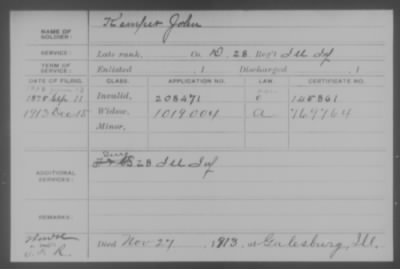 NAME OF SOLDIER: Kemper John
SERVICE: Late rank, Co. D, 28 Reg't Ill Inf
TERM OF SERVICE: Enlisted , 1 Discharged , 1
DATE OF FILING. CLASS. APPLICATION NO. LAW. CERTIFICATE NO.
1878 Sep 11 Invalid, 208471
1913 Dec 15 Widow, 1019004 a 769764
Minor,
ADDITIONAL SERVICES: 28 Ill Inf
REMARKS:
Died Nov 27 1913 at Galesburg, Ill.